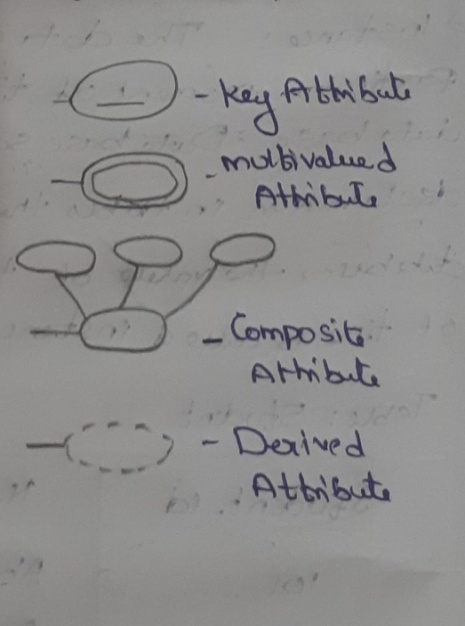 - Key Attribute
- multivalued
Attribute
- Composite
Attribute
- Derived
Attribute